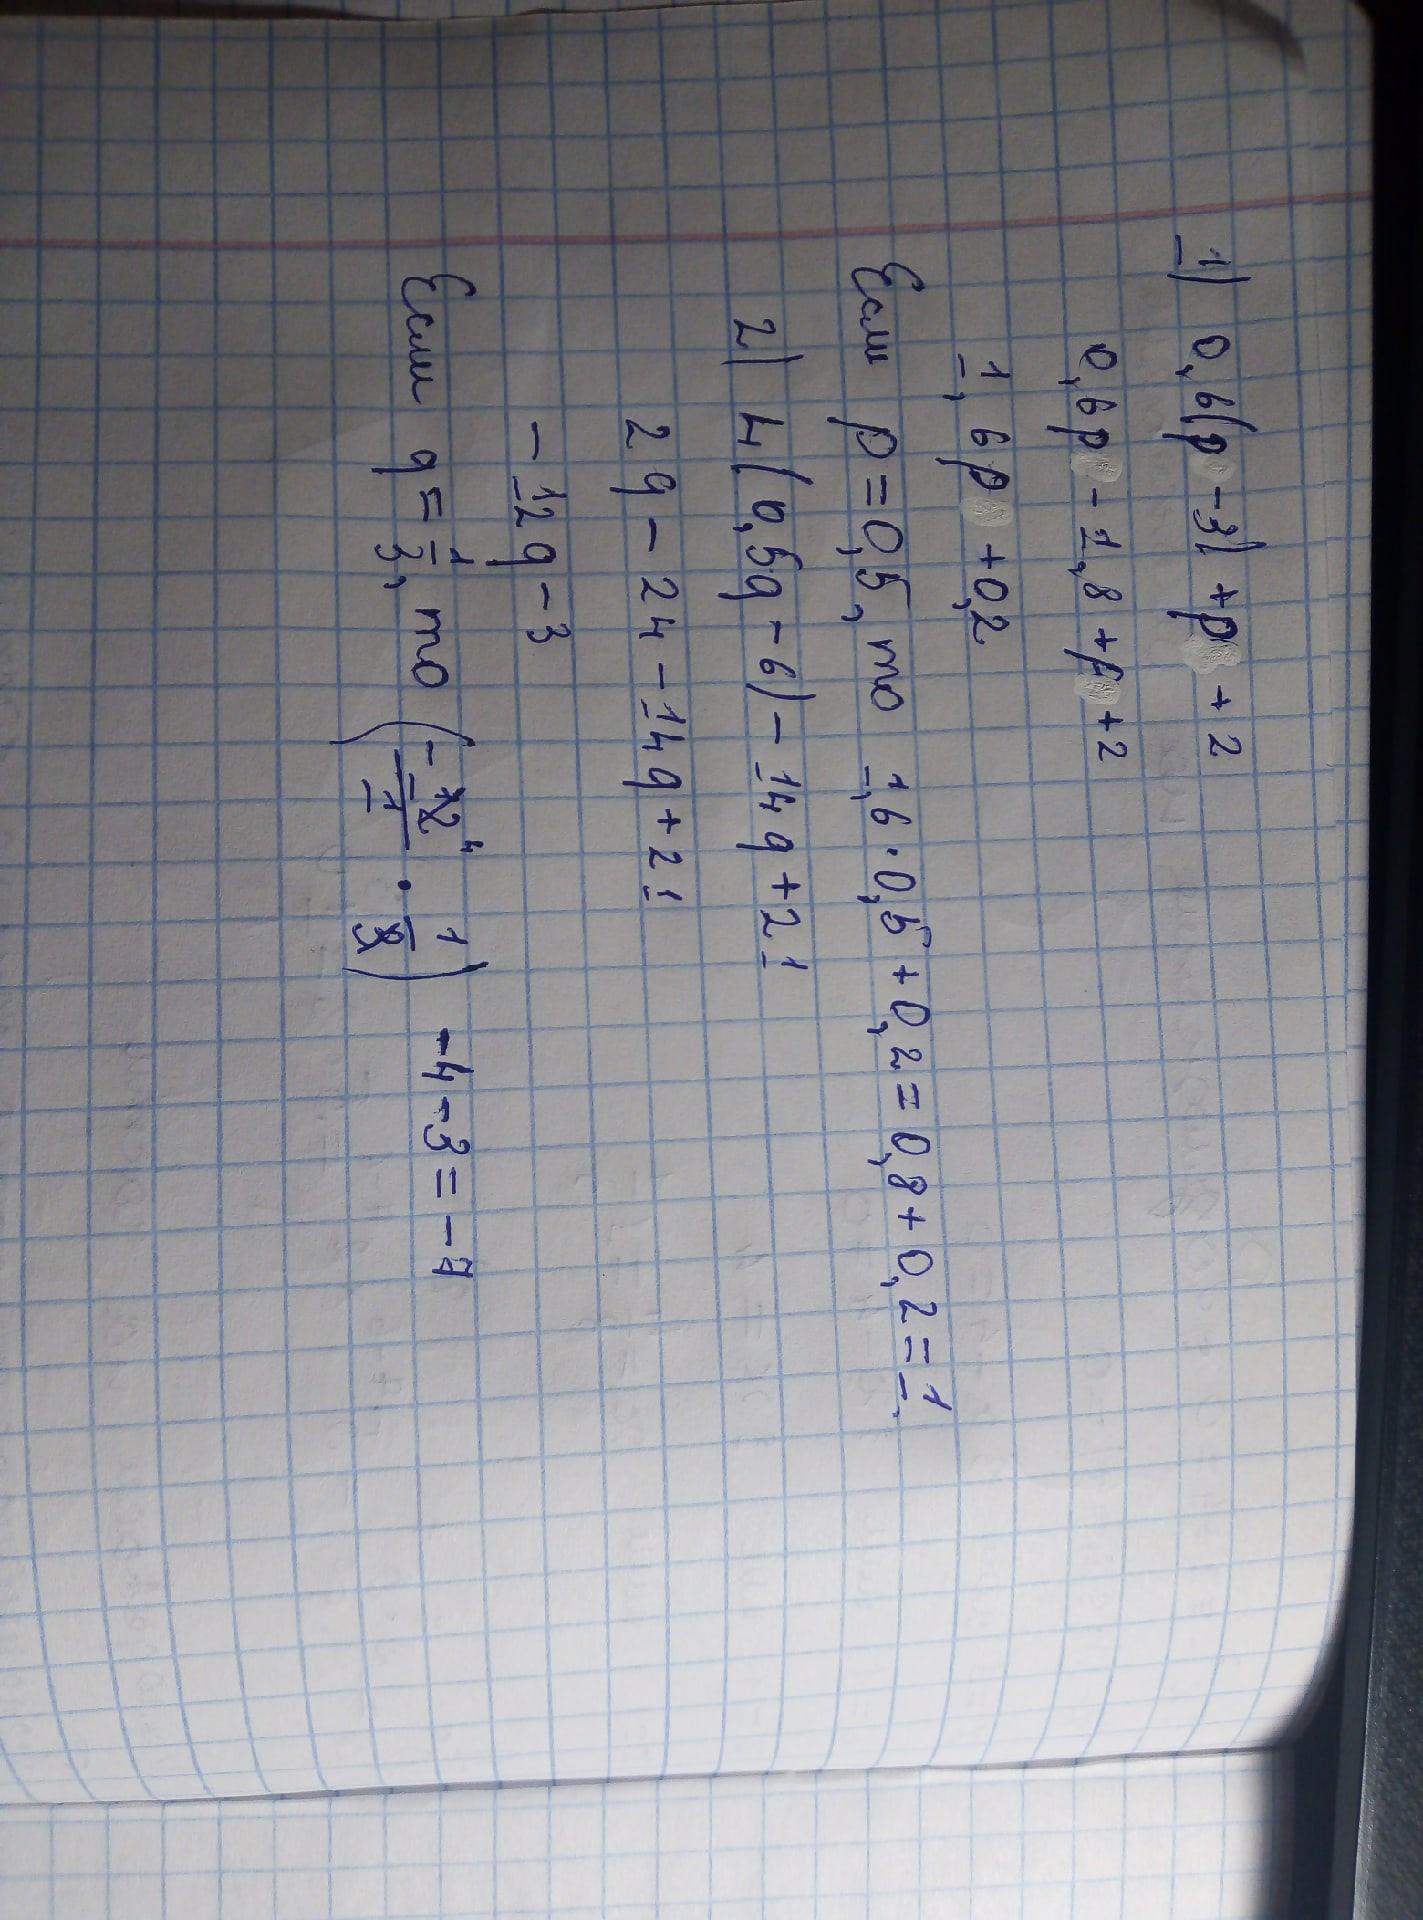 1) 0,6(p-3)+p+2
0,6p-1,8+p+2
1,6p+0,2
Если p=0,5, то 1,6·0,5+0,2=0,8+0,2=1.
2) 4(0,5q-6)-14q+21
2q-24-14q+21
-12q-3
Если q=1/3, то (-12⁴/1 · 1/3) -4-3=-7